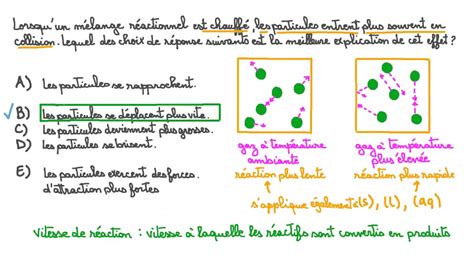 Lorsqu'un mélange réactionnel est chauffé, les particules entrent plus souvent en
collision. Lequel des choix de réponse suivants est la meilleure explication de cet effet ?
A) Les particules se rapprochent.
B) Les particules se déplacent plus vite.
C) Les particules deviennent plus grosses.
D) Les particules se brisent.
E) Les particules exercent des forces
d'attraction plus fortes
gaz à température
ambiante
réaction plus lente
gaz à température
plus élevée
réaction plus rapide
s'applique également à (s), (l), (aq)
vitesse de réaction : vitesse à laquelle les réactifs sont convertis en produits